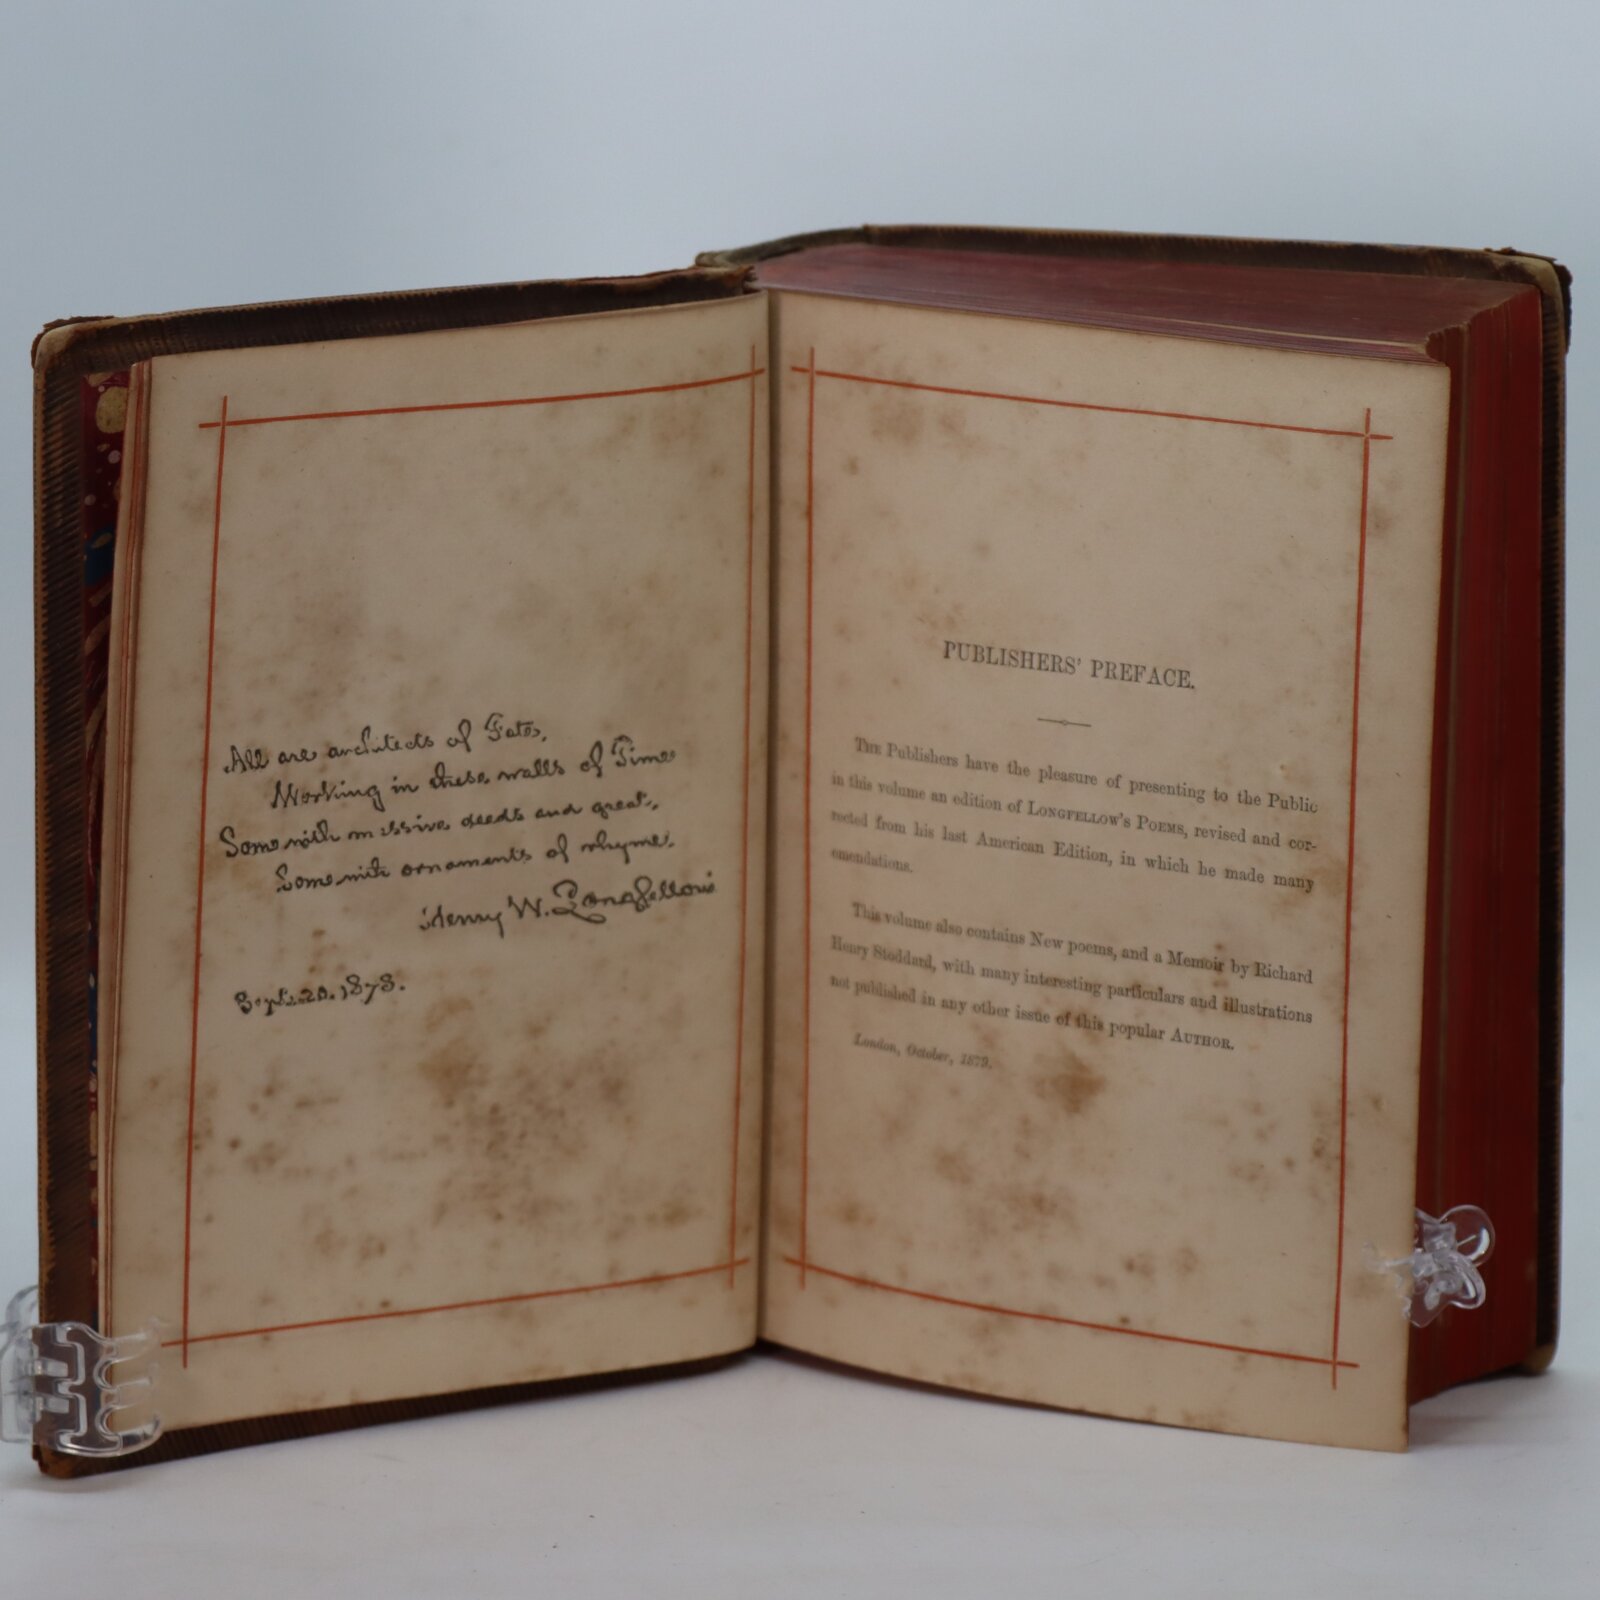 All are architects of Fate,
Working in these walls of Time
Some with massive deeds and great,
Some with ornaments of rhyme.
Henry W. Longfellow
Sept. 20. 1878.
PUBLISHERS' PREFACE.
THE Publishers have the pleasure of presenting to the Public
in this volume an edition of LONGFELLOW'S POEMS, revised and cor-
rected from his last American Edition, in which he made many
emendations.
This volume also contains New poems, and a Memoir by Richard
Henry Stoddard, with many interesting particulars and illustrations
not published in any other issue of this popular AUTHOR.
London, October, 1879.